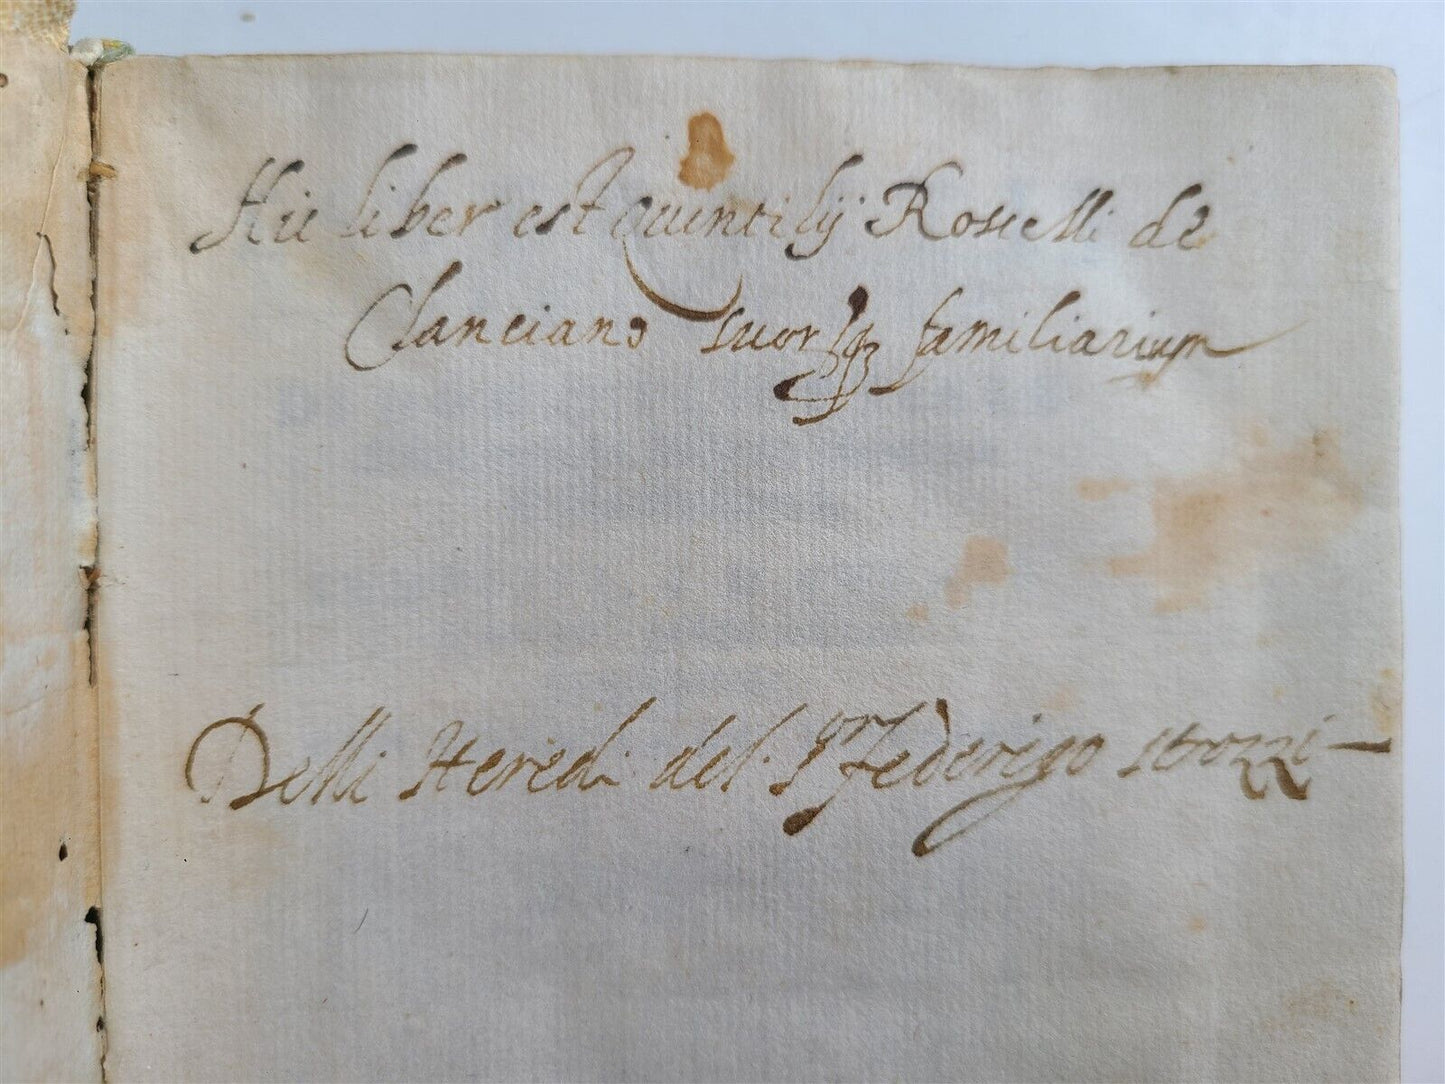 Hic liber est Quintilij Roscelli de
Clanciano suorq; familiarium
Delli Heredi del Sor Federigo strozzi